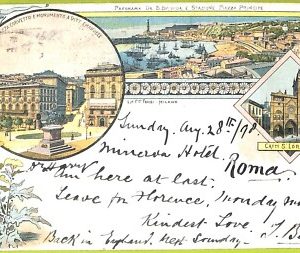 PANORAMA DA S. BENIGNO E STAZIONE PIAZZA PRINCIPE
CORVETTO E MONUMENTO A VITT. EMANUELE
MILANO
CHIESA S. LOR
Sunday Aug. 28th/98
Minerva Hotel,
Roma.
Dr Harry
Am here at last.
Leave for Florence, Monday mo
Kindest Love,
Back in England, next Sunday -